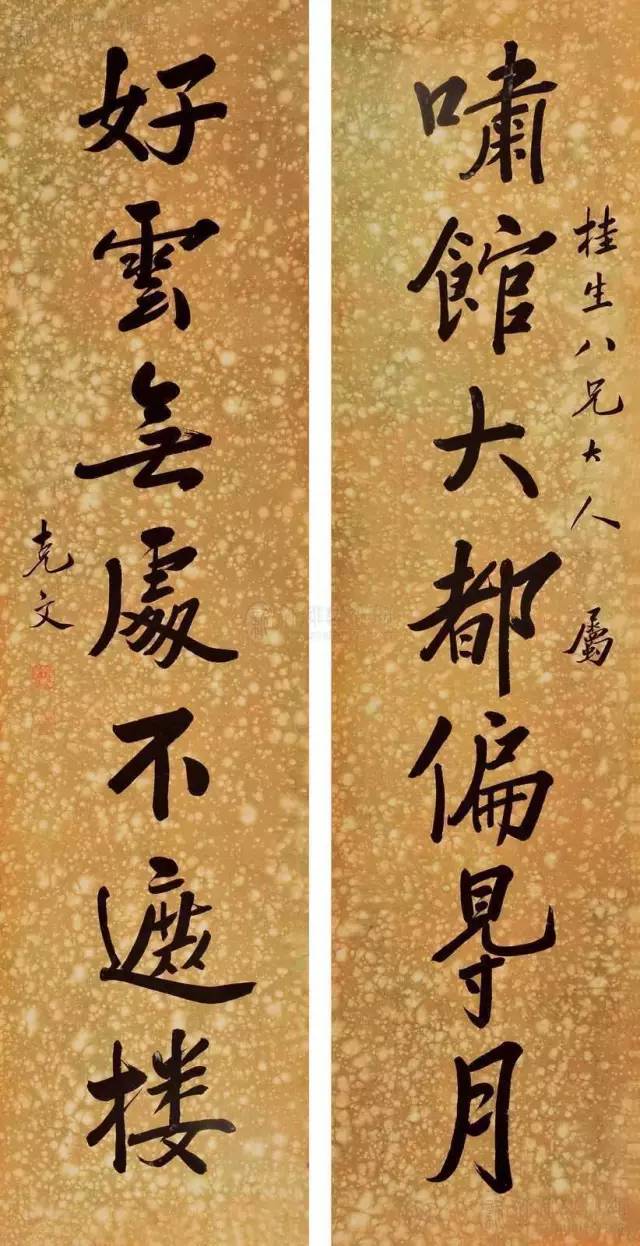 桂生八兄大人属
嘯館大都偏㝵月
好雲無處不遮楼
克文